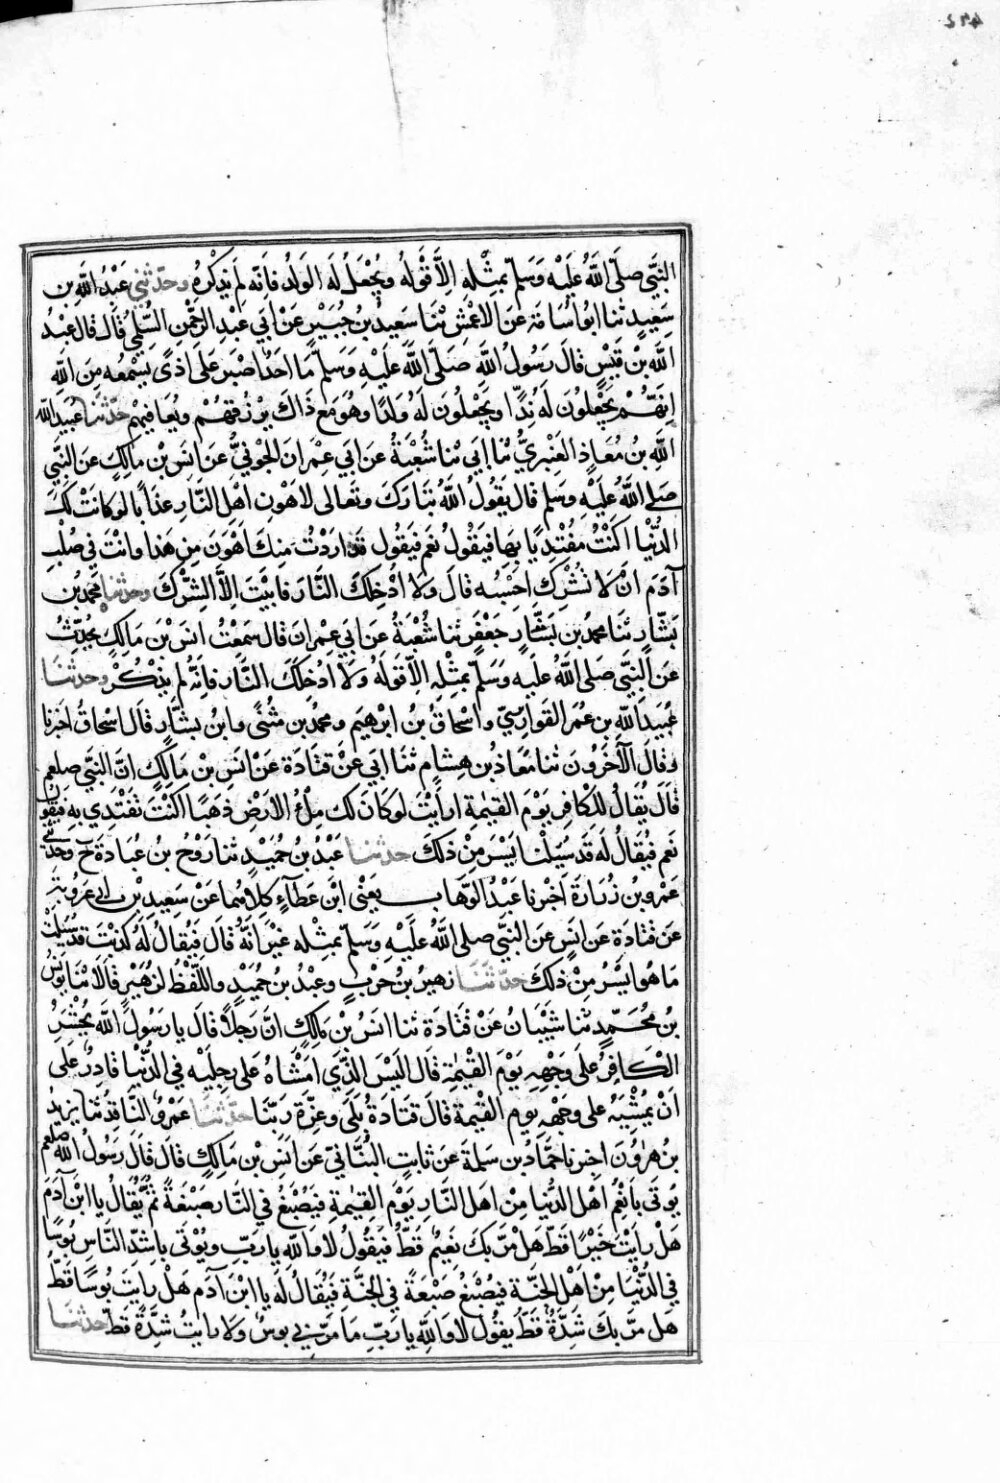 النَّبِيِّ صلَّى اللَّهُ عَلَيْهِ وَسَلَّم بِمِثْلِهِ اِلاَّ قَوْلَهُ وَيُجْعَلُ لَهُ الوَلَدُ فَاِنَّه لَمْ يَذْكُرْهُ وحدّثني عَبْدُ اللَّهِ بن
سَعِيدٍ ثنا ابُو اُسَامَة عَنِ الاعْمَشِ ثَنَا سَعِيدُ بْنُ جُبَيْرٍ عَنْ اَبِي عَبْدِ الرَّحْمٰنِ السُّلَمِيُّ قَالَ قَالَ عَبْدُ
اللَّهِ بْنُ قَيْسٍ قَالَ رَسُولُ اللَّهِ صَلَّى اللَّهُ عَلَيْهِ وَسَلَّم مَا اَحَدٌ اَصْبَرَ عَلَى اَذًى يَسْمَعُه مِنَ اللَّهِ
اِنَّهُمْ يَجْعَلُونَ لَهُ نِدًّا وَيَجْعَلُونَ لَهُ وَلَدًا وَهُوَ مَعَ ذَالِكَ يَرْزُقُهُمْ وَيُعَافِيهِمْ حدثنا عُبَيد الله
اللَّهِ بنُ مُعَاذٍ العَنْبَرِيُّ ثنا اَبِي ثنا شُعْبَةُ عَنْ اَبِي عِمْرَانَ الجَوْنِيُّ عَنْ اَنَسِ بْنِ مَالِكٍ عَنِ النَّبِيِّ
صَلَّى اللَّهُ عَلَيْهِ وَسَلم قال يَقُولُ اللَّهُ تَبَارَكَ وتَعَالى لاهْوَنِ اَهْلِ النَّارِ عَذَاباً لَوْ كَانَتْ لَكَ
الدُّنْيَا اَكُنْتَ مُفْتَدِيًا بِهَا فَيَقُولُ نَعَمْ فَيَقُولُ قَدْ اَرَدْتُ مِنكَ اَهْوَنَ مِن هَذا وانْتَ فِي صُلْبِ
آدَمَ اَنْ لاَ تُشْرِكَ احْسِبُه قَالَ وَلاَ اُدْخِلَكَ النَّارَ فَابَيْتَ اِلاَّ الشِّرْكَ وحدثنا محمّد بْن
بَشَّارٍ ثَنَا محمد بن بَشَّارٍ جَعْفَرٍ ثنا شُعْبَةُ عَنْ اَبِي عِمْرَانَ قَالَ سَمِعْتُ انَسَ بْنَ مَالِكٍ يُحَدِّثُ
عَنِ النَّبِيِّ صَلَى اللَّهُ عَلَيه وَسَلَّم بِمِثْلِهِ اِلاَّ قَولَهُ وَلاَ اُدْخِلَكَ النَّارَ فَاِنَّهُ لَم يَذْكُرْ وحدثنا
عُبَيدُ اللَّهِ بن عُمَر القَوَارِيرِيّ وَاِسْحَاقُ بْنُ اِبْرَهيمَ ومحمّد بن مُثَنًّى وابنُ بَشَّارٍ قَالَ اِسْحَاقُ اخبرنا
وقَالَ الآخَرُونَ ثنا مُعَاذُ بن هِشَامٍ ثنا ابي عَنْ قَتَادَة عَنْ انَسِ بْنِ مَالِكٍ اَنَّ النَّبِيّ صلعم
قَالَ يُقَالُ لِلْكَافِرِ يَوْمَ القِيٰمَة ارَايْتَ لَوْ كَانَ لَكَ مِلْءُ الاَرْضِ ذَهَبًا اَكُنْتَ تَفْتَدِي بِه فَيَقُولُ
نَعَم فَيُقَالُ لَه قَد سُيِلْتَ اَيْسَرَ مِنْ ذَلِكَ حدثنا عَبْدُ بنُ حُمَيْدٍ ثنا رَوْحُ بنُ عُبَادَة ح وحَدّثني
عَمْرُو بْنُ زُرَارَةَ اَخْبَرَنا عَبْدُ الوَهَّابِ يَعْنِي ابْنَ عَطَاءٍ كِلاَهُمَا عَنْ سَعِيدِ بْنِ ابِي عَرُوبَة
عَن قَتَادَة عَن انَسٍ عَنِ النَّبِيِّ صلى اللَّهُ عَلَيْهِ وَسَلَّم بِمِثْلِه غَيْرَ اَنَّهُ قَالَ فَيُقَالُ لَهُ كَذَبْتَ قَدْ سُيِلْتَ
مَا هُوَ اَيْسَرُ مِنْ ذَلِكَ حدّثَنَا زهيرُ بنُ حَربٍ وعَبْدُ بن حُمَيْدٍ واللَّفْظُ لِزُهَيْرٍ قَالاَ ثنَا يُونُسُ
بنُ مُحَمَّدٍ ثنا شَيْبَانُ عَنْ قَتَادَة ثنا انَسُ بْنُ مَالِكٍ اَنَّ رَجُلاً قَالَ يا رَسُولَ اللَّهِ يُحْشَرُ
الْكَافِرُ عَلَى وَجْهِهِ يَوْمَ القِيٰمَةِ قَالَ اَلَيْسَ الَّذِي اَمْشَاهُ عَلَى رِجْلَيْهِ فِي الدُّنْيَا قَادِرٌ عَلَى
اَنْ يُمْشِيَهُ عَلى وَجْهِهِ يَوم القِيمَة قَالَ قَتَادَةُ بَلَى وَعِزَّة رَبِّنَا حدّثنا عَمْرُو النَّاقِدُ ثنا يَزِيدُ
بنُ هٰرُونَ اخبرنا حَمَّادُ بن سَلَمَة عَن ثَابِتٍ البُنَانِيّ عَنْ اَنَسِ بْن مَالِكٍ قَالَ قَالَ رَسُولُ اللَّهِ صلعم
يُوتَى بِاَنْعَمِ اَهْلِ الدُّنْيَا مِنْ اهَلِ النَّارِ يَوْمَ القِيٰمَةِ فَيُصْبَغُ فِي النَّارِ صَبْغَةً ثُمَّ يُقَالُ يا ابْنَ آدَمَ
هَلْ رَايْتَ خَيْرًا قَطّ هَلْ مَرَّ بِكَ نَعِيمٌ قَطُّ فَيَقُولُ لا وَاللَّهِ يا رَبِّ وَيُوْتَى بِاَشَدِّ النَّاسِ بُوسًا
فِي الدُّنْيَا مِنْ اَهْلِ الجَنَّةِ فَيُصْبَغُ صَبْغَةً فِي الجَنَّةِ فَيُقَالُ لَه يا ابْنَ آدَم هَلْ رايتَ بُوسًا قَطُّ
هَل مَرَّ بِكَ شِدَّةٌ قَطُّ يقُولُ لا وَاللَّهِ يا رَبِّ مَا مَرّ بِي بوسٌ وَلا رايتُ شِدَّةً قَطُّ حدثنا